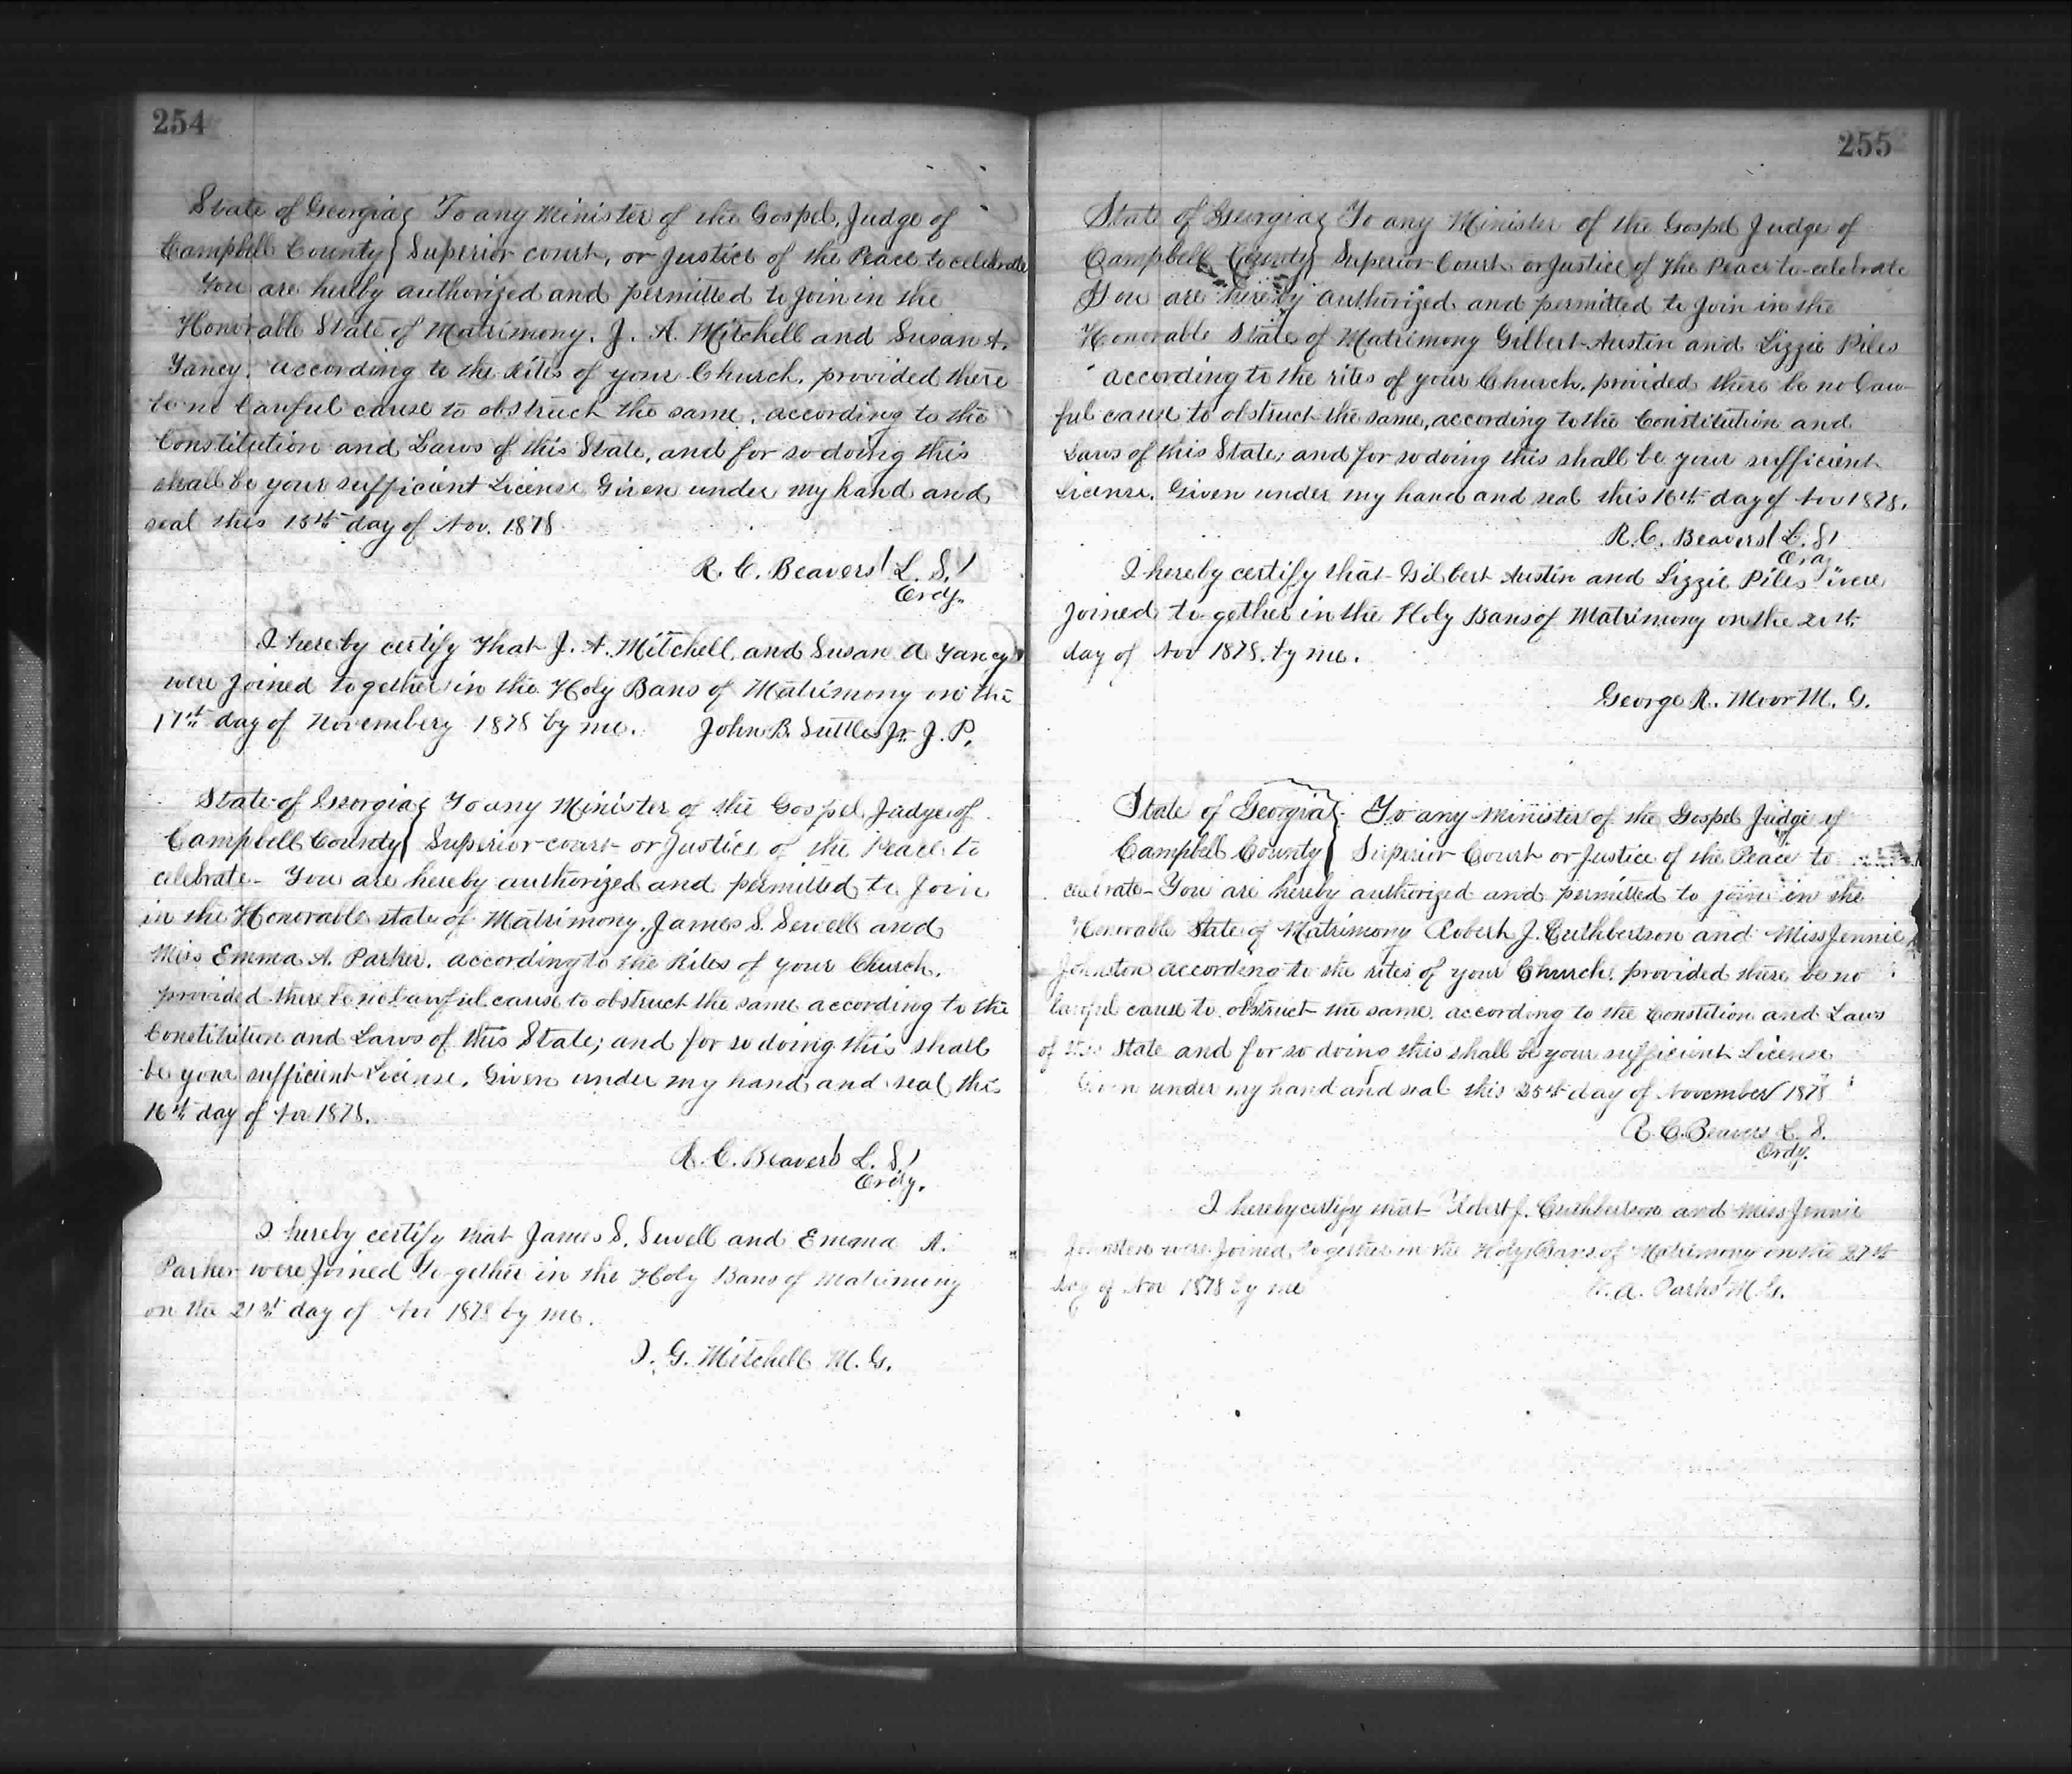 254
State of Georgia } To any Minister of the Gospel, Judge of
Campbell County } Superior court, or Justice of the Peace to celebrate
You are hereby authorized and permitted to Join in the
Honorable State of Matrimony. J. A. Mitchell and Susan A.
Yancy. according to the Rites of your Church, provided there
be no Lawful cause to obstruct the same, according to the
Constitution and Laws of this State, and for so doing this
shall be your sufficient License Given under my hand and
seal this 15th day of Nov. 1878
R. C. Beavers L. S.
Ordy.
I hereby certify That J. A. Mitchell and Susan A Yancy
were Joined together in the Holy Bans of Matrimony on the
17th day of Novembery 1878 by me. John B. Suttles Jr. J. P.
State of Georgia } To any Minister of the Gospel Judge of
Campbell County } Superior court or Justice of the Peace to
celebrate - You are hereby authorized and permitted to Join
in the Honorable state of Matrimony, James S. Sewell and
Miss Emma A. Parker. according to the Rites of your Church.
provided there be no Lawful cause to obstruct the same according to the
Constitution and Laws of this State; and for so doing this shall
be your sufficient License. Given under my hand and seal this
16th day of Nov 1878.
R. C. Beavers L. S.
Ordy.
I hereby certify that James S. Sewell and Emma A.
Parker were Joined to-gether in the Holy Bans of Matrimony
on the 21st day of Nov 1878 by me.
I. G. Mitchell M. G.
255
State of Georgia } To any Minister of the Gospel Judge of
Campbell County } Superior Court or Justice of the Peace to celebrate
You are hereby authorized and permitted to Join in the
Honorable State of Matrimony Gilbert Austin and Lizzie Piles
according to the rites of your Church, provided there be no Law-
ful cause to obstruct the same, according to the Constitution and
Laws of this State; and for so doing this shall be your sufficient
License. Given under my hand and seal this 16th day of Nov 1878.
R. C. Beavers L. S.
Ordy
I hereby certify that Gilbert Austin and Lizzie Piles were
Joined to-gether in the Holy Bans of Matrimony on the 20th
day of Nov 1878. by me.
George R. Moor M. G.
State of Georgia } To any Minister of the Gospel Judge of
Campbell County } Superior Court or Justice of the Peace to
celebrate - You are hereby authorized and permitted to join in the
Honorable State of Matrimony Robert J. Cuthbertson and Miss Jennie
Johnston according to the rites of your Church, provided there be no
lawful cause to obstruct the same. according to the Constition and Laws
of this State and for so doing this shall be your sufficient License
Given under my hand and seal this 25th day of November 1878
R. C. Beavers L. S.
Ordy.
I hereby certify that Robert J. Cuthbertson and Miss Jennie
Johnston were Joined together in the Holy Bans of Matrimony on the 27th
day of Nov 1878 by me A. Parks M. G.